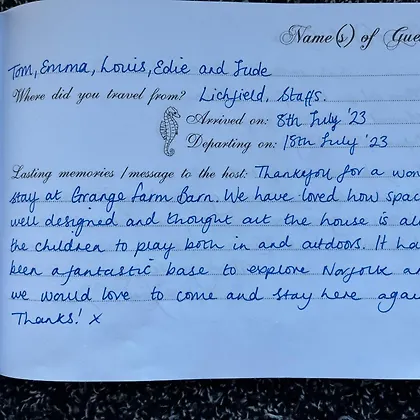 Name(s) of Gue
Tom, Emma, Louis, Edie and Jude
Where did you travel from? Lichfield, Staffs.
Arrived on: 8th July '23
Departing on: 15th July '23
Lasting memories / message to the host: Thankyou for a won
stay at Grange Farm Barn. We have loved how spac
well designed and thought out the house is all
the children to play both in and outdoors. It ha
been a fantastic base to explore Norfolk an
we would love to come and stay here agai
Thanks! x